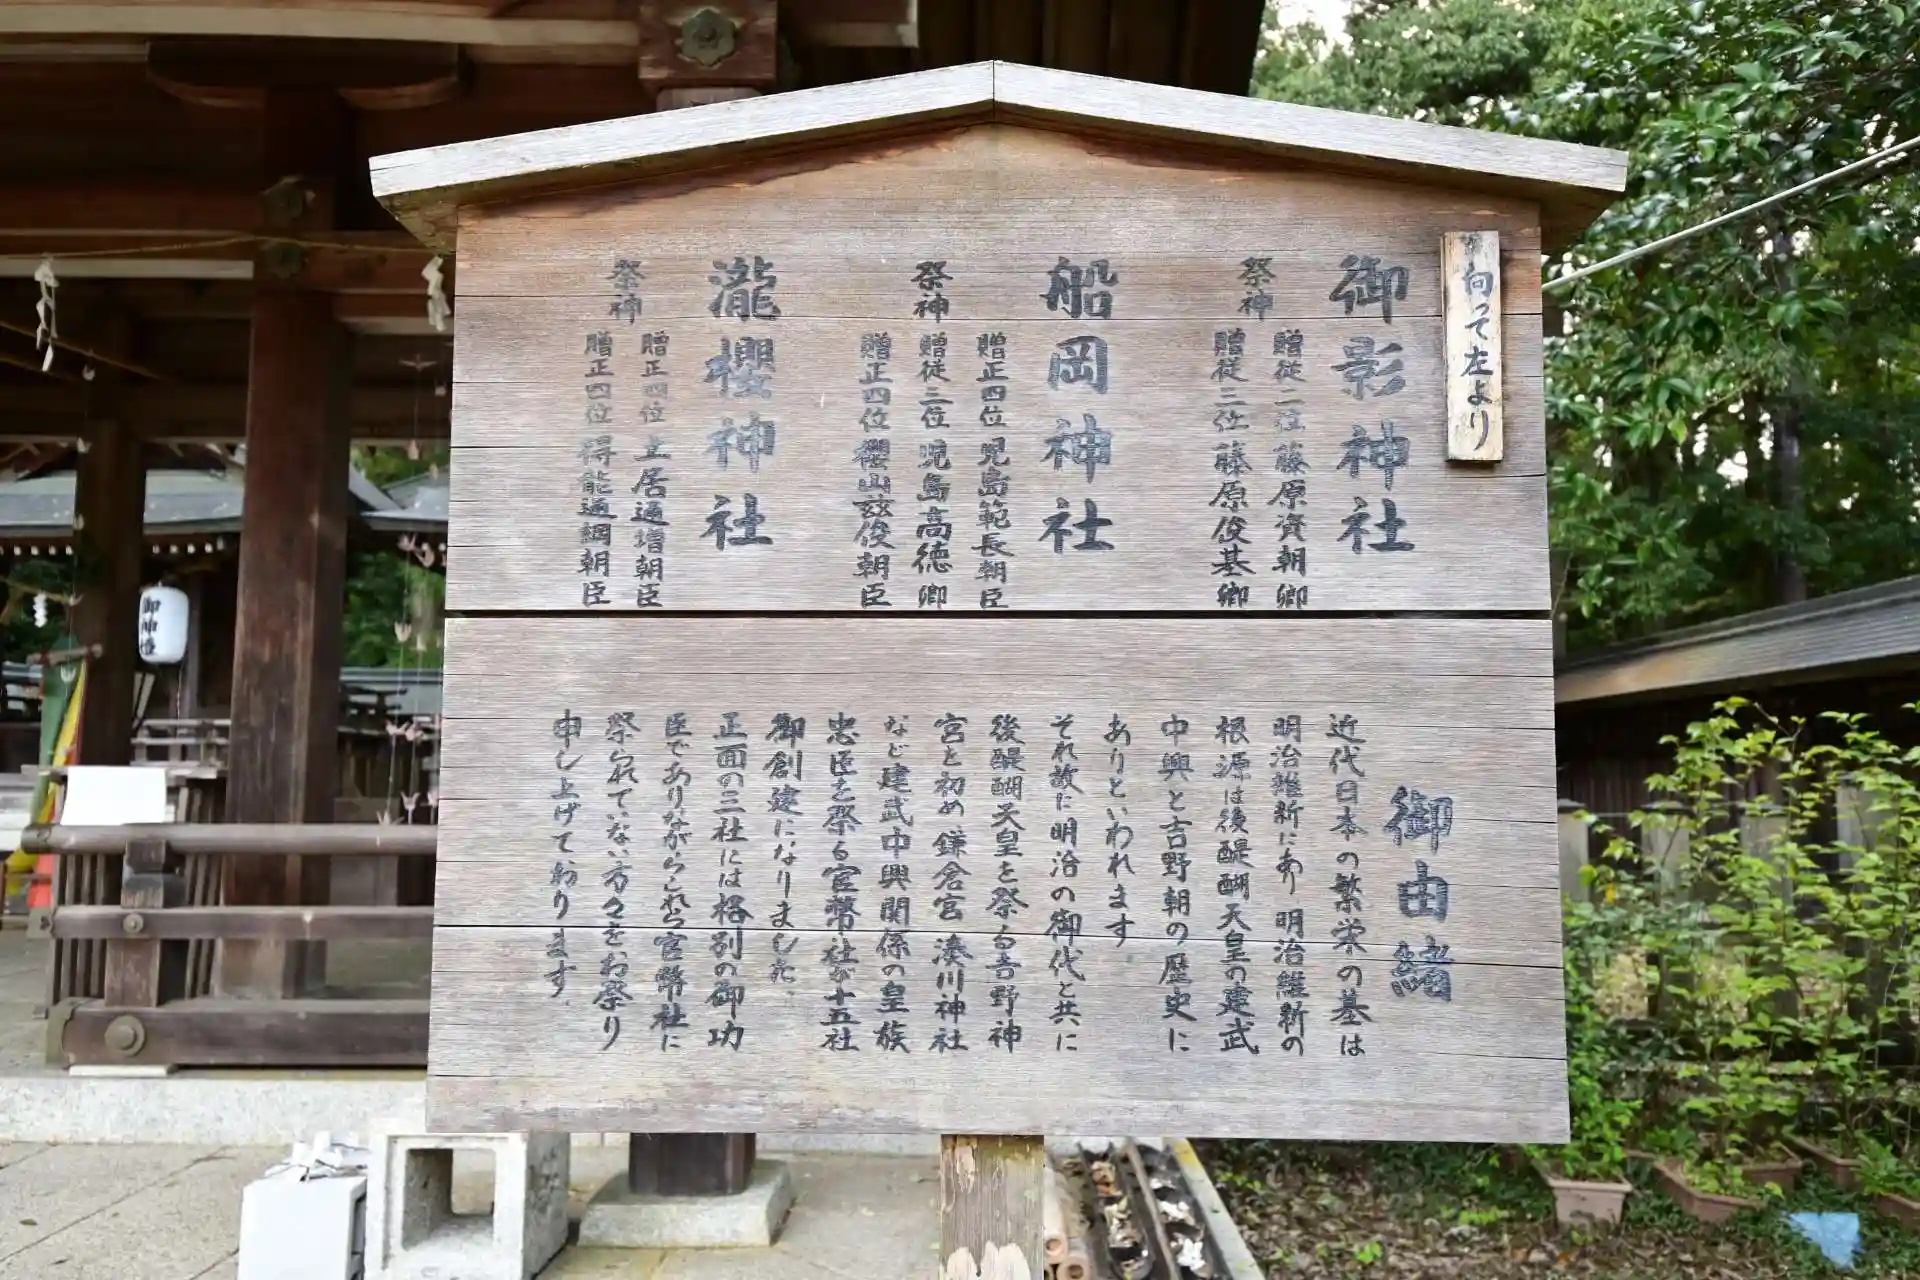 向って左より
御影神社
祭神
贈従一位 藤原資朝卿
贈従三位 藤原俊基卿
船岡神社
祭神
贈正四位 児島範長朝臣
贈従三位 児島高徳卿
贈正四位 櫻山玆俊朝臣
瀧櫻神社
祭神
贈正四位 土居通増朝臣
贈正四位 得能通綱朝臣
御由緒
近代日本の繁栄の基は
明治維新にあり 明治維新の
根源は後醍醐天皇の建武
中興と吉野朝の歴史に
ありといわれます
それ故に明治の御代と共に
後醍醐天皇を祭る吉野神
宮を初め 鎌倉宮 湊川神社
など建武中興関係の皇族
忠臣を祭る官幣社が十五社
御創建になりました
正面の三社には格別の御功
臣でありながらこれら官幣社に
祭られていない方々をお祭り
申し上げております
御神燈